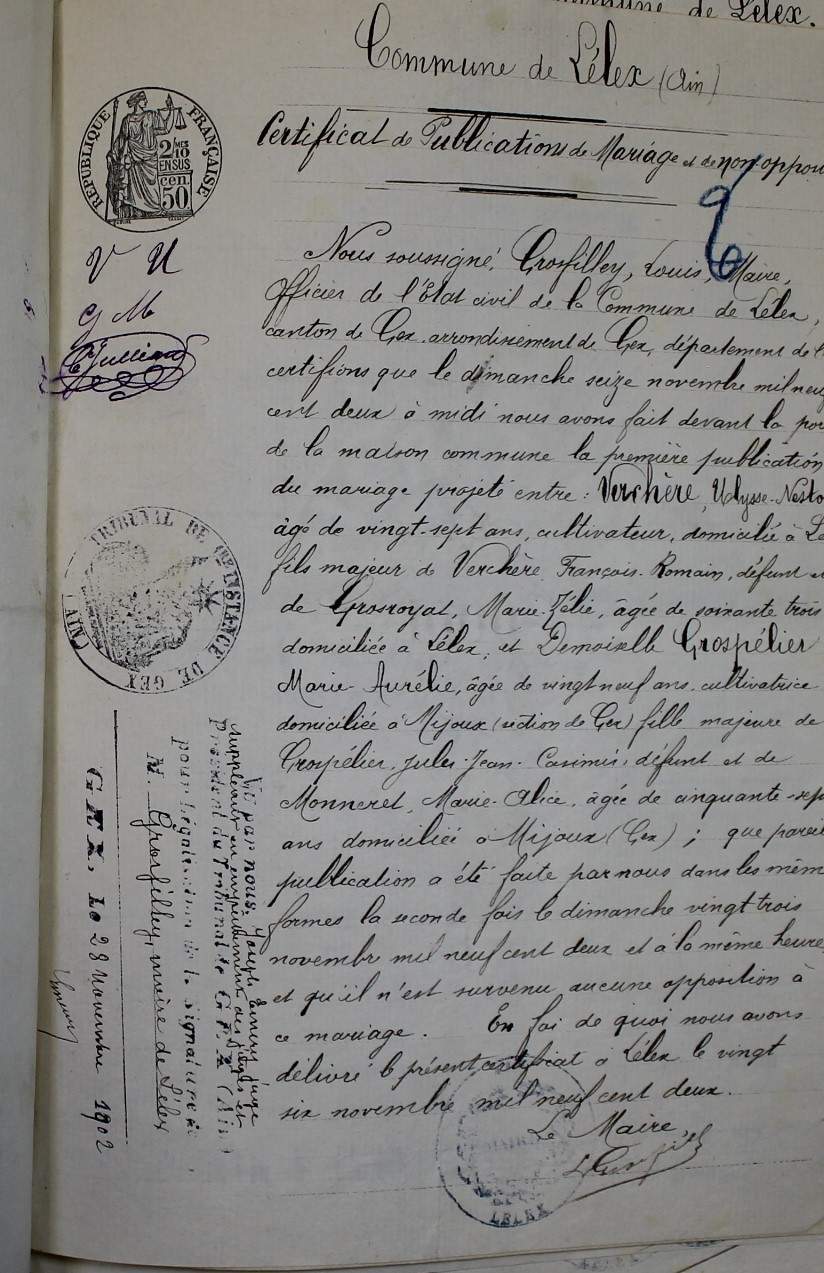 de Lélex.
Commune de Lélex (Ain)
Certificat de Publications de Mariage et de non oppos
6
Nous soussigné, Grosfilley, Louis, Maire,
officier de l'Etat civil de la Commune de Lélex,
canton de Gex, arrondissement de Gex, département de l'
certifions que le dimanche seize novembre mil neuf
cent deux à midi nous avons fait devant la por
de la maison commune la première publication
du mariage projeté entre : Verchère, Ulysse-Nesto
âgé de vingt-sept ans, cultivateur, domicilié à Lé
fils majeur de Verchère, François-Romain, défunt et
de Grosroyat, Marie-Zélie, âgée de soixante trois
domiciliée à Lélex, et Demoiselle Grospélier
Marie-Aurélie, âgée de vingt neuf ans, cultivatrice
domiciliée à Mijoux (section de Gex) fille majeure de
Grospélier, Jules-Jean-Casimir, défunt et de
Monneret, Marie-Alice, âgée de cinquante-sep
ans domiciliée à Mijoux (Gex) ; que pareil
publication a été faite par nous dans les mêm
formes la seconde fois le dimanche vingt trois
novembre mil neuf cent deux et à la même heure,
et qu'il n'est survenu aucune opposition à
ce mariage. En foi de quoi nous avons
délivré le présent certificat à Lélex le vingt
six novembre mil neuf cent deux.
Le Maire,
LELEX
REPUBLIQUE FRANÇAISE
2/10 MES
EN SUS
50 cen
V U
G M
TRIBUNAL DE 1RE INSTANCE DE GEX (AIN)
Vu par nous, Joseph juge
suppléant en empêchement des Juges et
Président du Tribunal de GEX (Ain)
pour légalisation de la signature de
M. Grosfilley, maire de Lélex
GEX, Le 28 Novembre 1902